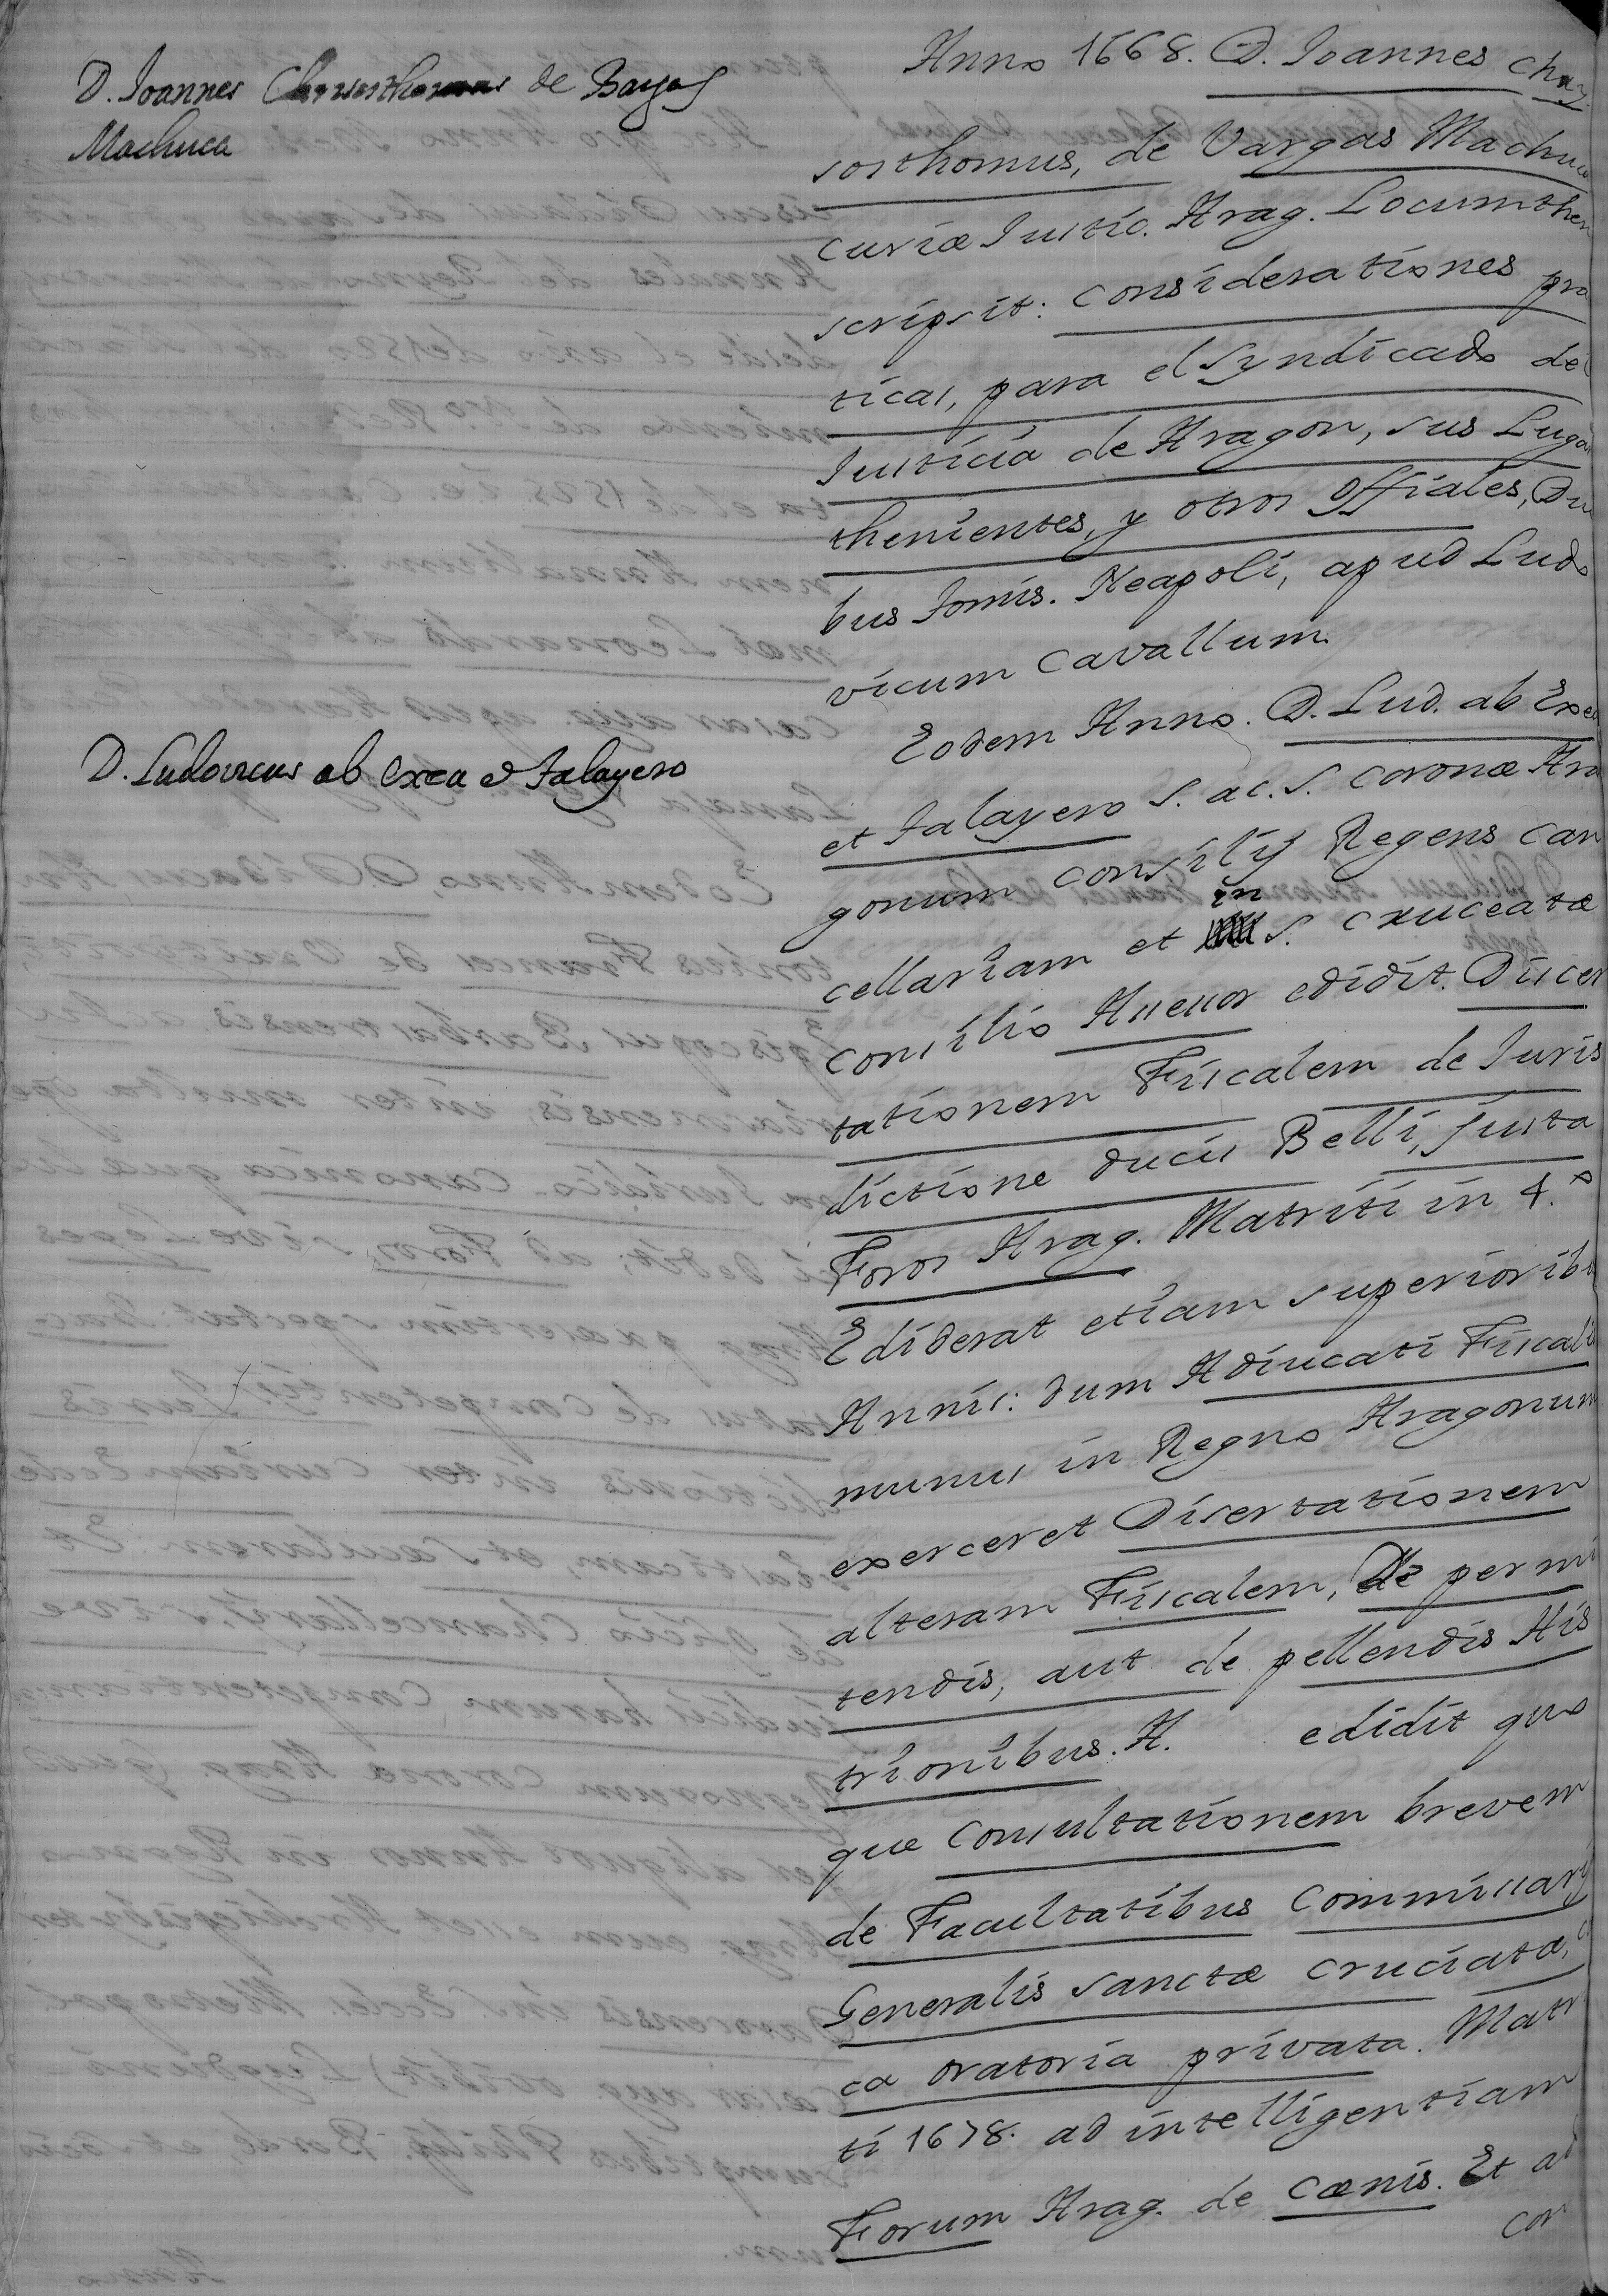 D. Ioannes de
Machuca
Anno 1668. D. Ioannes Chry
sosthomus, de Vargas Machuca
curiæ Iustic. Arag. Locumthen
scripsit: Consideraciones pra
ticas, para el Syndicado del
Iusticia de Aragon, sus Lugar
thenientes, y otros Offiales, Duo
bus Tomis. Neapoli, apud Ludo
vicum Cavallum.
D. Ludovicus ab Exea et Talayero
Eodem Anno. D. Lud. ab Exea
et Talayero S. ac. S. Coronæ Ara
gonum Consilij Regens Can
cellariam et in S. Cruceatæ
Consilio Assesor edidit. Discer
tationem Fiscalem de Iuris
dictione ducis Belli, justa
Foros Arag. Matriti in 4.º
Ediderat etiam superioribu
Annis: dum Aduocati Fiscalis
munus in Regno Aragonum
exerceret Disertationem
alteram Fiscalem, De permi
tendis, aut de pellendis His
trionibus. A. edidit quo
que Consultationem brevem
de Facultatibus Commissarij
Generalis Sanctæ Cruciatæ, ci
ca oratoria privata. Matri
ti 1678. ad intelligentiam
Forum Arag. de Cœnis. Et ad
Con